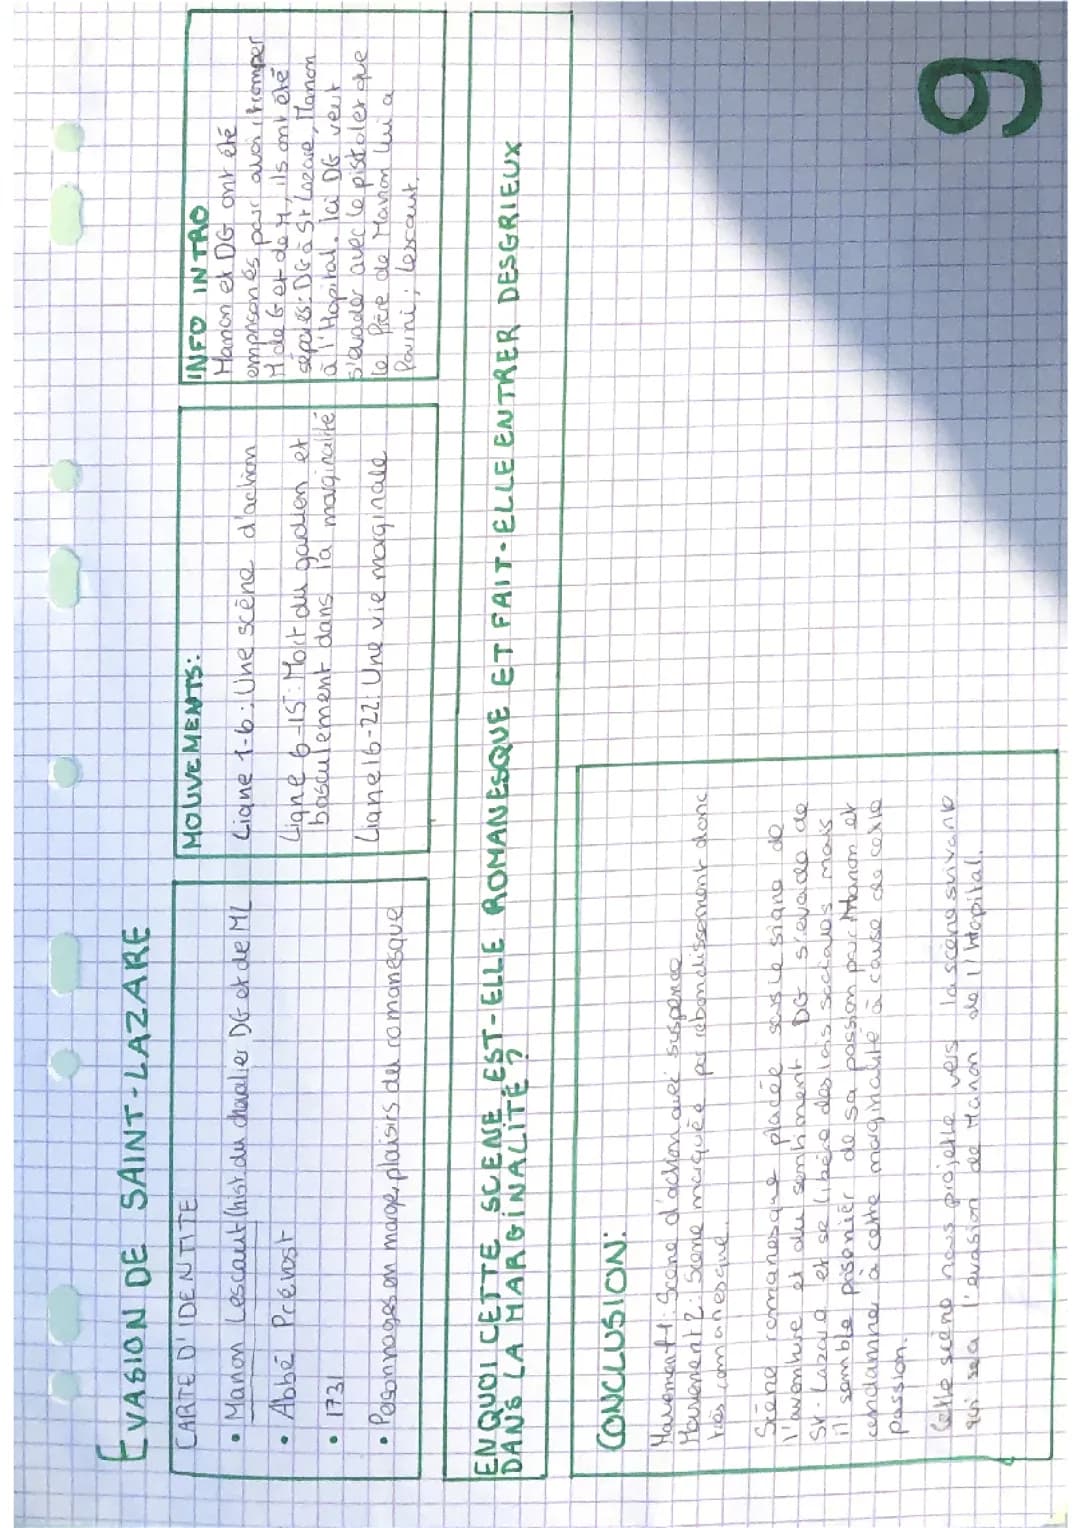 EVASION DE SAINT-LAZARE
CARTE D'IDENTITE
• Manon Lescaut (hist. du chevalier DG et de ML
• Abbé Prévost
• 1731
• Personnages en marge, plaisirs du romanesque
MOUVEMENTS:
Ligne 1-6: Une scène d'action
Ligne 6-15: Mort du gardien et
basculement dans la marginalité
Ligne 16-22: Une vie marginale
INFO INTRO
Manon et DG ont été
emprisonés pour avoir tromper
M de G et de M, ils ont été
séparés: DG à St Lazare, Manon
à l'Hopital. Ici DG veut
s'évader avec le pistolet que
le frère de Manon lui a
fourni; Lescaut.
EN QUOI CETTE SCENE EST-ELLE ROMANESQUE ET FAIT-ELLE ENTRER DESGRIEUX
DANS LA MARGINALITE?
CONCLUSION:
Mouvement 1: Scène d'action avec suspence
Mouvement 2: Scène marquée par rebondissement donc
très romanesque.
Scène romanesque placée sous le signe de
l'aventure et du sentiment DG s'évade de
St-Lazare et se libère des lois sociales mais
il semble prisonier de sa passion par Manon et
condamner à cette marginalité à cause de cette
passion.
Cette scène nous projette vers la scène suivante
qui sera l'évasion de Manon de l'Hopital.
9